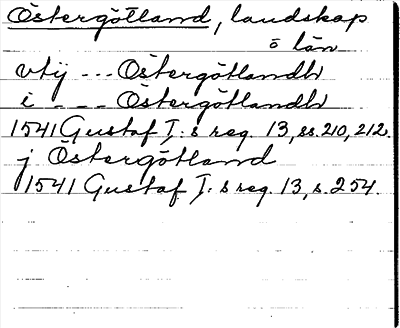 Östergötland, landskap
o län
vtij --- Östergötlandh
i - - - Östergötlandh
1541 Gustaf I:s reg. 13, ss. 210, 212.
j Östergötland
1541 Gustaf I:s reg. 13, s. 254.